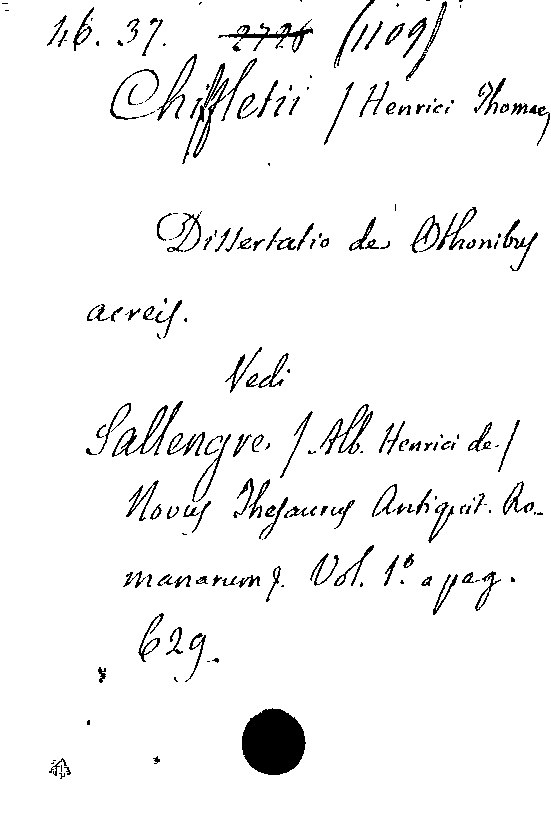 46. 37. 2726 (1109)
Chiffletii / Henrici Thomae,
Dissertatio de Othonibus
aereis.
Vedi
Sallengre. / Alb. Henrici de /
Novus Thesaurus Antiquit. Ro-
manarum &. Vol. 1º. a pag.
629.